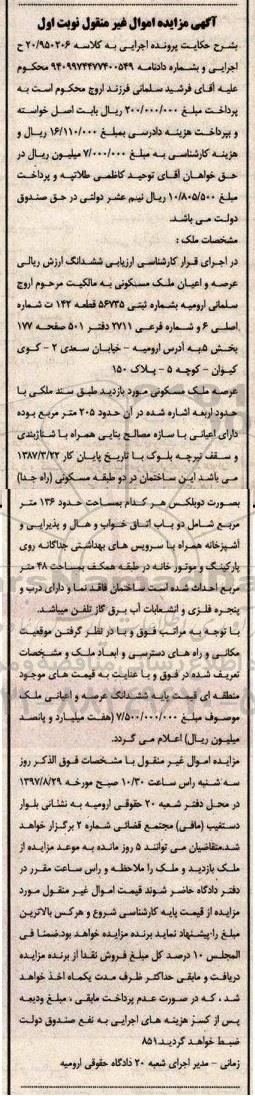 آگهی مزایده اموال غیر منقول نوبت اول
بشرح حکایت پرونده اجرایی به کلاسه ۲۰/۹۵۰۲۰۶ ح
اجرایی و بشماره دادنامه ۹۴۰۹۹۷۴۴۷۷۴۰۰۵۴۹ محکوم
علیه آقای فرشید سلمانی فرزند اروج محکوم است به
پرداخت مبلغ ۲۰۰/۰۰۰/۰۰۰ ریال بابت اصل خواسته
و پرداخت هزینه دادرسی بمبلغ ۱۶/۱۱۰/۰۰۰ ریال و
هزینه کارشناسی به مبلغ ۷/۰۰۰/۰۰۰ میلیون ریال در
حق خواهان آقای توحید کاظمی طلاتپه و پرداخت
مبلغ ۱۰/۸۰۵/۵۰۰ ریال نیم عشر دولتی در حق صندوق
دولت می باشد.
مشخصات ملک :
در اجرای قرار کارشناسی ارزیابی ششدانگ ارزش ریالی
عرصه و اعیان ملک مسکونی به مالکیت مرحوم اروج
سلمانی ارومیه بشماره ثبتی ۵۶۷۳۵ قطعه ۱۴۲ ت شماره
اصلی ۶ و شماره فرعی ۲۷۱۱ دفتر ۵۰۱ صفحه ۱۷۷
بخش ۵ به آدرس ارومیه - خیابان سعدی ۲ - کوی
کیوان - کوچه ۵ - پلاک ۱۵۰
عرصه ملک مسکونی مورد بازدید طبق سند ملکی با
حدود اربعه اشاره شده در آن حدود ۲۰۵ متر مربع بوده
دارای اعیانی با سازه مصالح بنایی همراه با شناژبندی
و سقف تیرچه بلوک با تاریخ پایان کار ۱۳۸۷/۳/۲۲
می باشد این ساختمان در دو طبقه مسکونی (راه جدا)
بصورت دوبلکس هر کدام بمساحت حدود ۱۳۶ متر
مربع شامل دو باب اتاق خواب و هال و پذیرایی و
آشپزخانه همراه با سرویس های بهداشتی جداگانه روی
پارکینگ و موتور خانه در طبقه همکف بمساحت ۴۸ متر
مربع احداث شده است ساختمان فاقد نما و دارای درب و
پنجره فلزی و انشعابات آب برق گاز تلفن میباشد.
با توجه به مراتب فوق و با در نظر گرفتن موقعیت
مکانی و راه های دسترسی و ابعاد ملک و مشخصات
تعریف شده در فوق و با عنایت به قیمت های موجود
منطقه ای قیمت پایه ششدانگ عرصه و اعیانی ملک
موصوف مبلغ ۷/۵۰۰/۰۰۰/۰۰۰ (هفت میلیارد و پانصد
میلیون ریال) اعلام می گردد.
مزایده اموال غیر منقول با مشخصات فوق الذکر روز
سه شنبه راس ساعت ۱۰/۳۰ صبح مورخه ۱۳۹۷/۸/۲۹
در محل دفتر شعبه ۲۰ حقوقی ارومیه به نشانی بلوار
دستغیب (مافی) مجتمع قضائی شماره ۲ برگزار خواهد
شد.متقاضیان می توانند ۵ روز مانده به موعد مزایده از
ملک بازدید و ملک را ملاحظه و راس ساعت مقرر در
دفتر دادگاه حاضر شوند قیمت اموال غیر منقول مورد
مزایده از قیمت پایه کارشناسی شروع و هرکس بالاترین
مبلغ را پیشنهاد نماید برنده مزایده خواهد بود.ضمنا فی
المجلس ۱۰ درصد کل مبلغ فروش نقدا از برنده مزایده
دریافت و مابقی حداکثر ظرف مدت یکماه اخذ خواهد
شد ، که در صورت عدم پرداخت مابقی ، مبلغ ودیعه
پس از کسر هزینه های اجرایی به نفع صندوق دولت
ضبط خواهد گردید.۸۵۱
زمانی - مدیر اجرای شعبه ۲۰ دادگاه حقوقی ارومیه